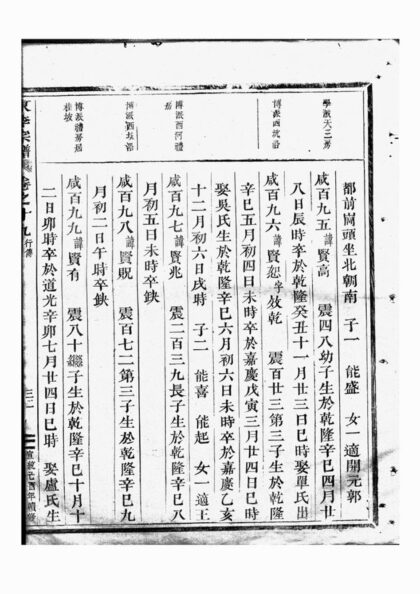 學派天三房
博派西沈沿
博派西河禮房
博派西坵沿
博派禮房遊
桂坡
都前崗頭坐北朝南 子一 能盛 女一適開元郭
咸百九五諱賢高 震四八幼子生於乾隆辛巳四月廿
八日辰時卒於乾隆癸丑十一月廿三日巳時娶單氏出
咸百九六諱賢恕字效乾 震百廿三第三子生於乾隆
辛巳五月初四日未時卒於嘉慶戊寅三月廿四日巳時
娶吳氏生於乾隆辛巳六月初六日未時卒於嘉慶乙亥
十二月初六日戌時 子二 能喜 能起 女一適王
咸百九七諱賢兆 震二百三九長子生於乾隆辛巳八
月初五日未時卒缺
咸百九八諱賢貺 震百七二第三子生於乾隆辛巳九
月初二日午時卒缺
咸百九九諱賢有 震八十繼子生於乾隆辛巳十月十
二日卯時卒於道光辛卯七月廿四日巳時 娶盧氏生
李宗譜 卷之十九 行傳
宣統元酉年續修